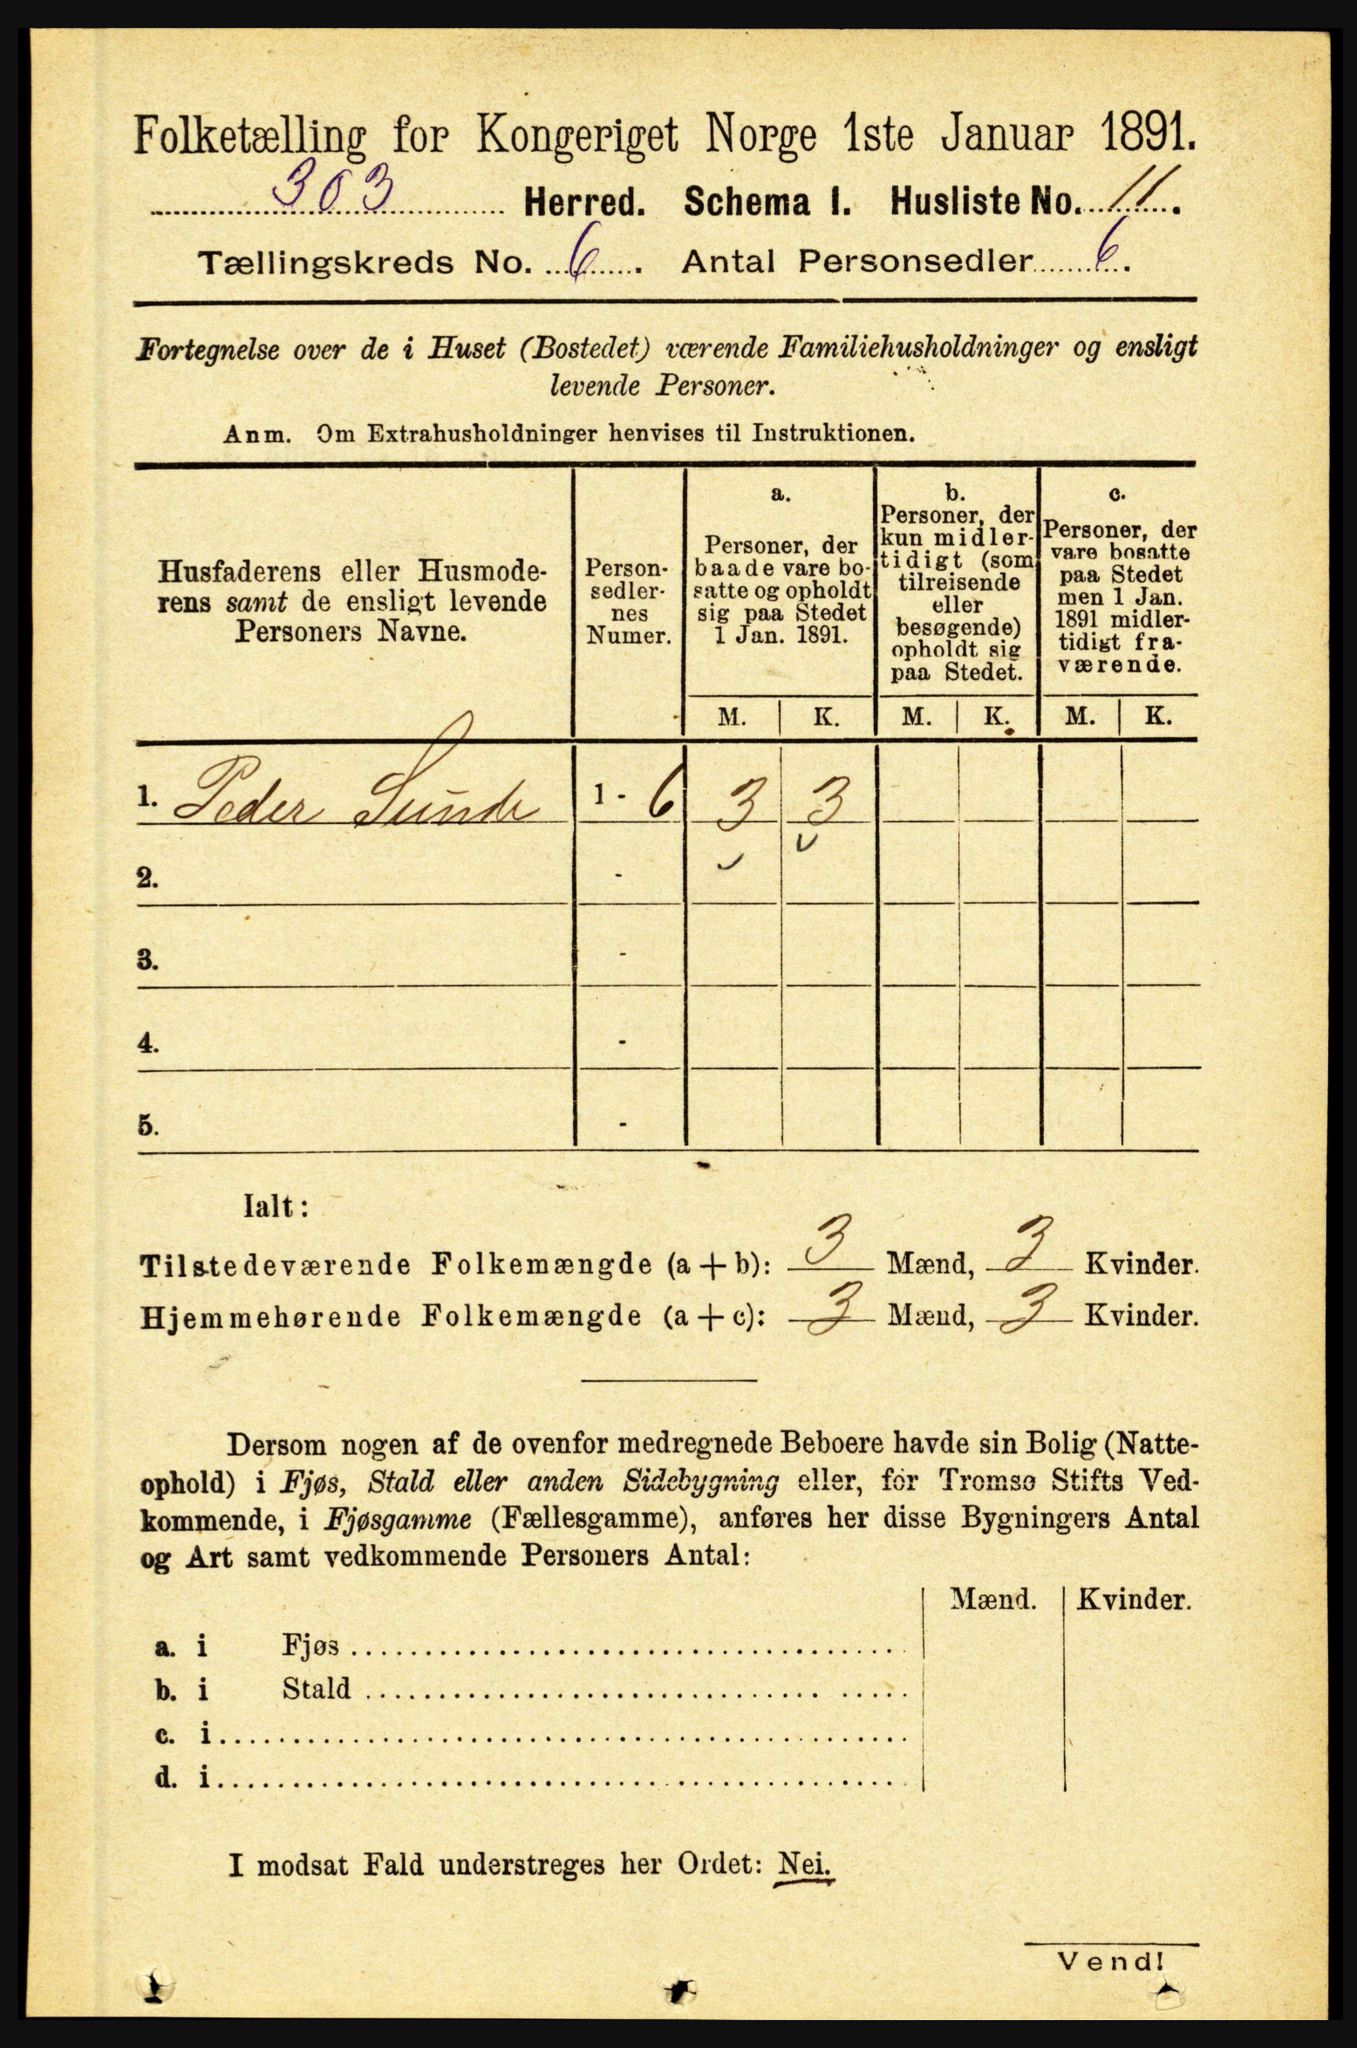 Folketælling for Kongeriget Norge 1ste Januar 1891.
303 Herred. Schema 1. Husliste No. 11.
Tællingskreds No. 6. Antal Personsedler 6.
Fortegnelse over de i Huset (Bostedet) værende Familiehusholdninger og ensligt
levende Personer.
Anm. Om Extrahusholdninger henvises til Instruktionen.
Husfaderens eller Husmode-
rens samt de ensligt levende
Personers Navne.
Person-
sedler-
nes
Numer.
a.
Personer, der
baade vare bo-
satte og opholdt
sig paa Stedet
1 Jan. 1891.
b.
Personer, der
kun midler-
tidigt (som
tilreisende
eller
besøgende)
opholdt sig
paa Stedet.
c.
Personer, der
vare bosatte
paa Stedet
men 1 Jan.
1891 midler-
tidigt fra-
værende.
M. K. M. K. M. K.
1. Peder Sunde 1 - 6 3 3
2. -
3. -
4. -
5. -
Ialt:
Tilstedeværende Folkemængde (a + b): 3 Mænd, 3 Kvinder.
Hjemmehørende Folkemængde (a + c): 3 Mænd, 3 Kvinder.
Dersom nogen af de ovenfor medregnede Beboere havde sin Bolig (Natte-
ophold) i Fjøs, Stald eller anden Sidebygning eller, for Tromsø Stifts Ved-
kommende, i Fjøsgamme (Fællesgamme), anføres her disse Bygningers Antal
og Art samt vedkommende Personers Antal:
Mænd. Kvinder.
a. i Fjøs
b. i Stald
c. i
d. i
I modsat Fald understreges her Ordet: Nei.
Vend!